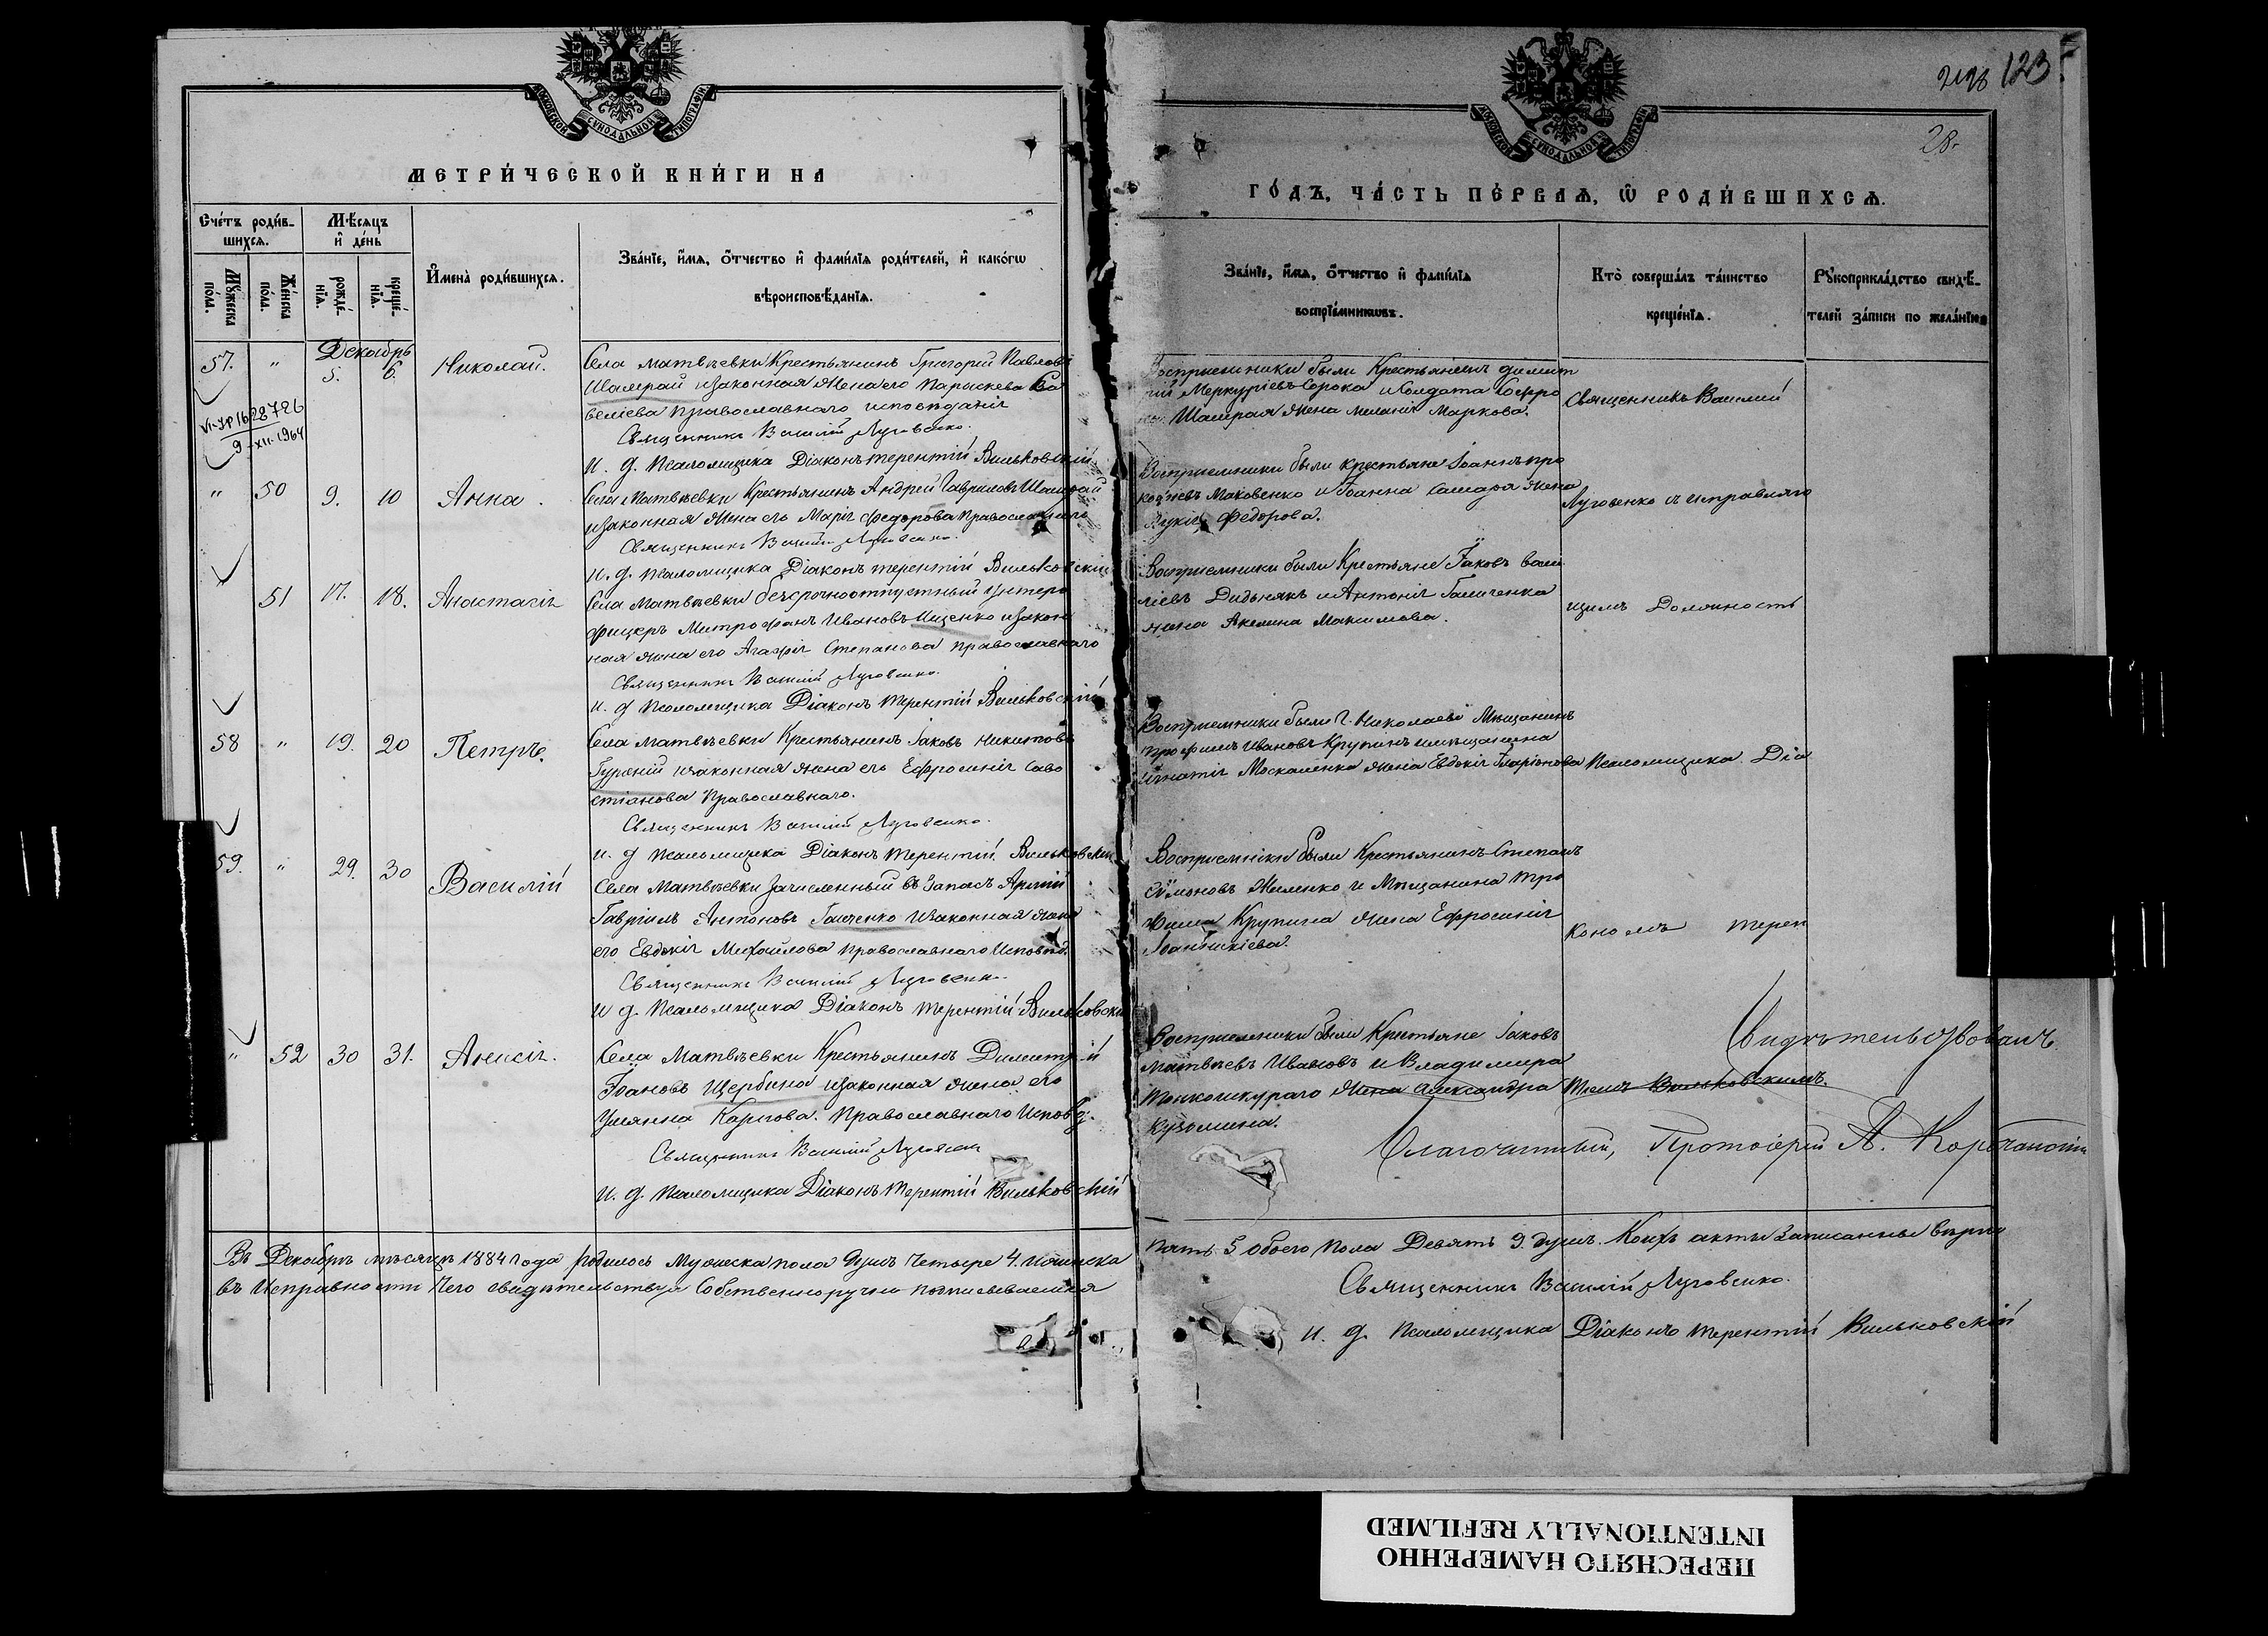 МОСКОВСКОЙ СУНОДАЛЬНОЙ ТИПОГРАФІИ
МЕТРИ́ЧЕСКОЙ КНИ́ГИ НА
Сче́тъ роди́в-
шихсѧ.
Мѣ́сѧцъ
и҆ де́нь
Мꙋ́жеска
по́ла.
Же́нска
по́ла.
рожде́-
нїѧ.
креще́-
нїѧ.
И҆мена̀ роди́вшихсѧ.
Зва́нїе, и҆́мѧ, ѻ҆́тчество и҆ фами́лїѧ роди́телей, и҆ како́гѡ
вѣроисповѣ́данїѧ.
Декабрь
57. " 5. 6. Николай.
Села Матвѣевки Крестьянинъ Григорій Павловъ
Шамрай и законная жена его Параскева Са
веліева православнаго исповѣданія
Священникъ Василій Луговенко.
И. д. Псаломщика Діаконъ Терентій Вильковскій
VI-ЯР 1628726
9-XII-1964
" 50 9. 10 Анна.
Села Матвѣевки Крестьянинъ Андрей Гавриловъ Шамрай
и законная жена его Марія Федорова Православнаго
Священникъ Василій Луговенко.
И. д. Псаломщика Діаконъ Терентій Вильковскій
51 17. 18. Анастасія
Села Матвѣевки безсрочноотпускный Унтеръ
фицеръ Митрофанъ Ивановъ Ищенко и закон
ная жена его Агафія Степанова православнаго
Священникъ Василій Луговенко.
И. д. Псаломщика Діаконъ Терентій Вильковскій
58 " 19. 20 Петръ.
Села Матвѣевки Крестьянинъ Іаковъ Никитовъ
Гурений и законная жена его Ефросинія Сава
стіанова Православнаго.
Священникъ Василій Луговенко.
И. д. Псаломщика Діаконъ Терентій Вильковскій
59. " 29. 30 Василій
Села Матвѣевки Зачисленный въ Запасъ Арміи
Гавріилъ Антоновъ Галченко и законная жена
его Евдокія Михайлова Православнаго Исповѣд.
Священникъ Василій Луговенко.
И. д. Псаломщика Діаконъ Терентій Вильковскій
" 52 30 31. Анисія.
Села Матвѣевки Крестьянинъ Димитрій
Іоановъ Щербина и законная жена его
Ульянна Карпова. Православнаго Исповѣд.
Священникъ Василій Луговенко
И. д. Псаломщика Діаконъ Терентій Вильковскій
Въ Декабрѣ мѣсяцѣ 1884 года родилось Мужеска пола душъ Четыре 4. Женска
въ Исправности чего свидѣтельствуя Собственноручно подписываемся
2198 123
28.
МОСКОВСКОЙ СУНОДАЛЬНОЙ ТИПОГРАФІИ
ГО́ДЪ, ЧА́СТЬ ПЕ́РВАѦ, Ѽ РОДИ́ВШИХСѦ.
Зва́нїе, и҆́мѧ, ѻ҆́тчество и҆ фами́лїѧ
воспрїе́мникѡвъ.
Кто̀ соверша́лъ та́инство
креще́нїѧ.
Рꙋкоприкла́дство свидѣ́-
телей за́писи по жела́нїю
Восприемники были Крестьянинъ Димит
рій Меркуріевъ Сорока и Солдата Софро
Шамрая жена Меланія Маркова.
Священникъ Василій
Восприемники были крестьяне Іоаннъ Про
кофьевъ Маковенко и Іоанна Самаря жена
Лукія Федорова.
Луговенко съ исправляю
Восприемники были Крестьяне Іаковъ Васи
ліевъ Дидынякъ и Антонія Галиченка
жена Акелина Максимова.
щимъ Должность
Восприемники были г. Николаева Мѣщанинъ
Трофимъ Ивановъ Крупинъ и мѣщанина
Игнатія Москаленка жена Евдокія Иларіонова
Псаломщика Діа
Восприемники были Крестьянинъ Степанъ
Симоновъ Жиленко и Мѣщанина Тро
фима Крупина жена Ефросинія
Іоанникіева.
кономъ Терен
Восприемники были Крестьяне Іаковъ
Матвѣевъ Ивановъ и Владимира
Тонкошкураго жена Александра
Кузьмина.
тіемъ Вильковскимъ.
Свидѣтельствовалъ
Благочинный, Протоіерей А.
Пять 5 обоего пола Девять 9. душъ. Коихъ акты Записанные вѣрно
Священникъ Василій Луговенко.
И. д. Псаломщика Діаконъ Терентій Вильковскій
ПЕРЕСНЯТО НАМЕРЕННО
INTENTIONALLY REFILMED